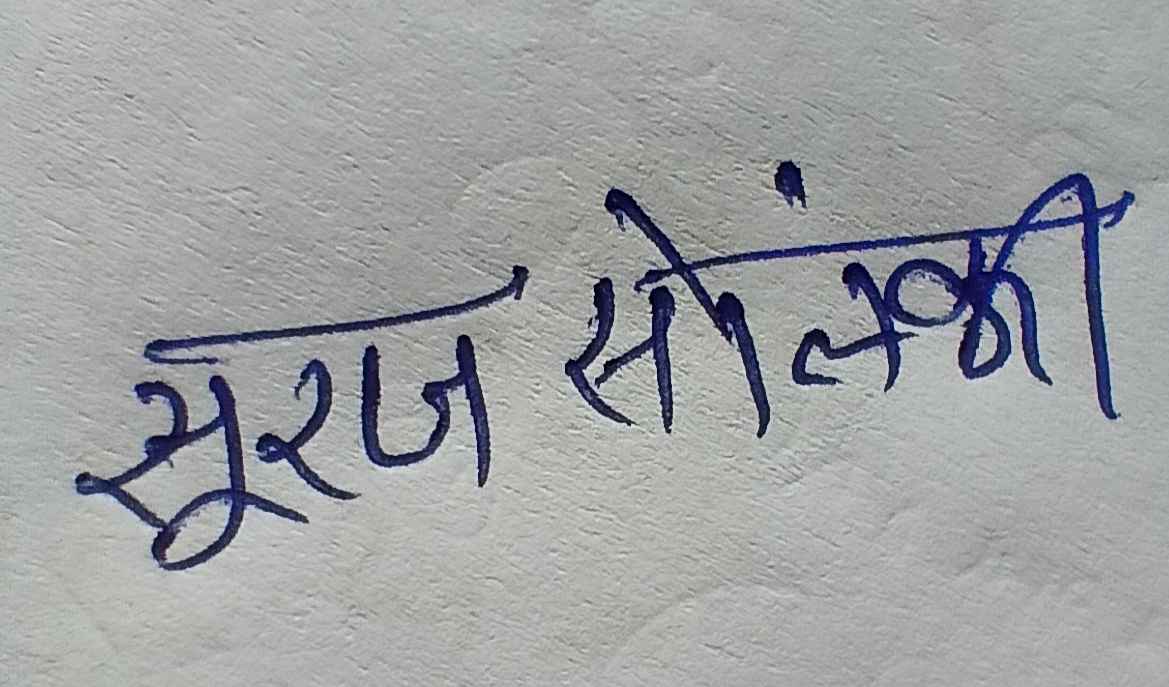 सूरज सोलंकी